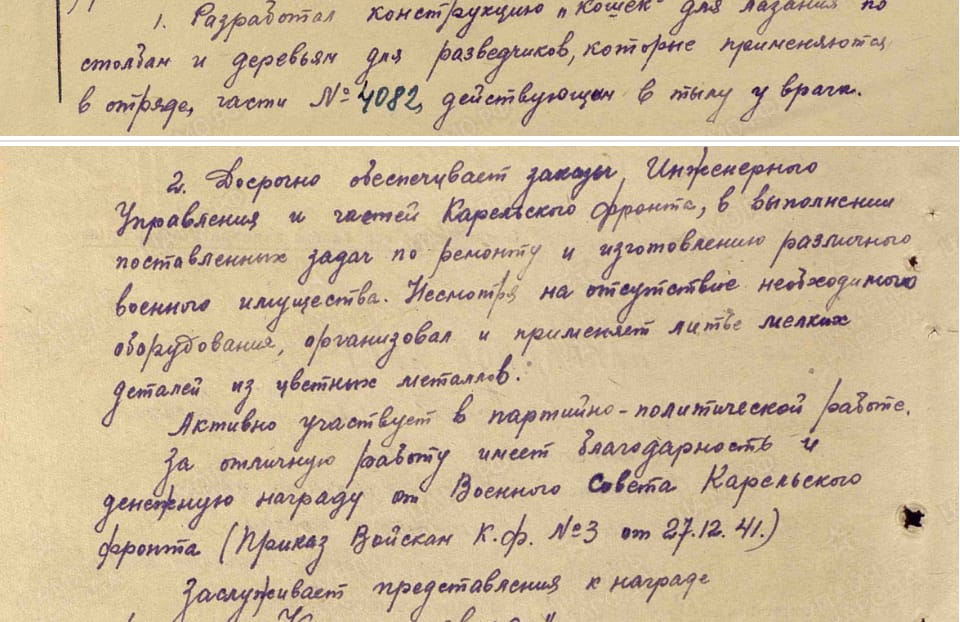 1. Разработал конструкцию "Кошек" для лазания по
столбам и деревьям для разведчиков, которые применяются
в отряде, части № 4082, действующем в тылу у врага.
2. Досрочно обеспечивает заказы Инженерного
Управления и частей Карельского фронта, в выполнении
поставленных задач по ремонту и изготовлению различного
военного имущества. Несмотря на отсутствие необходимого
оборудования, организовал и применяет литьё мелких
деталей из цветных металлов.
Активно участвует в партийно-политической работе.
За отличную работу имеет благодарность и
денежную награду от Военного Совета Карельского
фронта (Приказ Войскам К.ф. №3 от 27.12.41.)
Заслуживает представления к награде